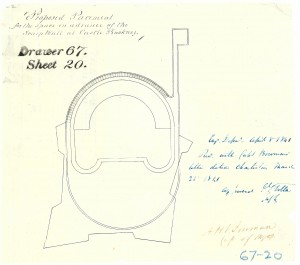 Proposed Pavement
for the Space in advance of the
Scarp Wall at Castle Pinckney
Drawer 67.
Sheet 20.
Eng. Dept. April 8 1841
Recd. with Capt Bowman
letter dated Charleston March
25th 1841
67-20